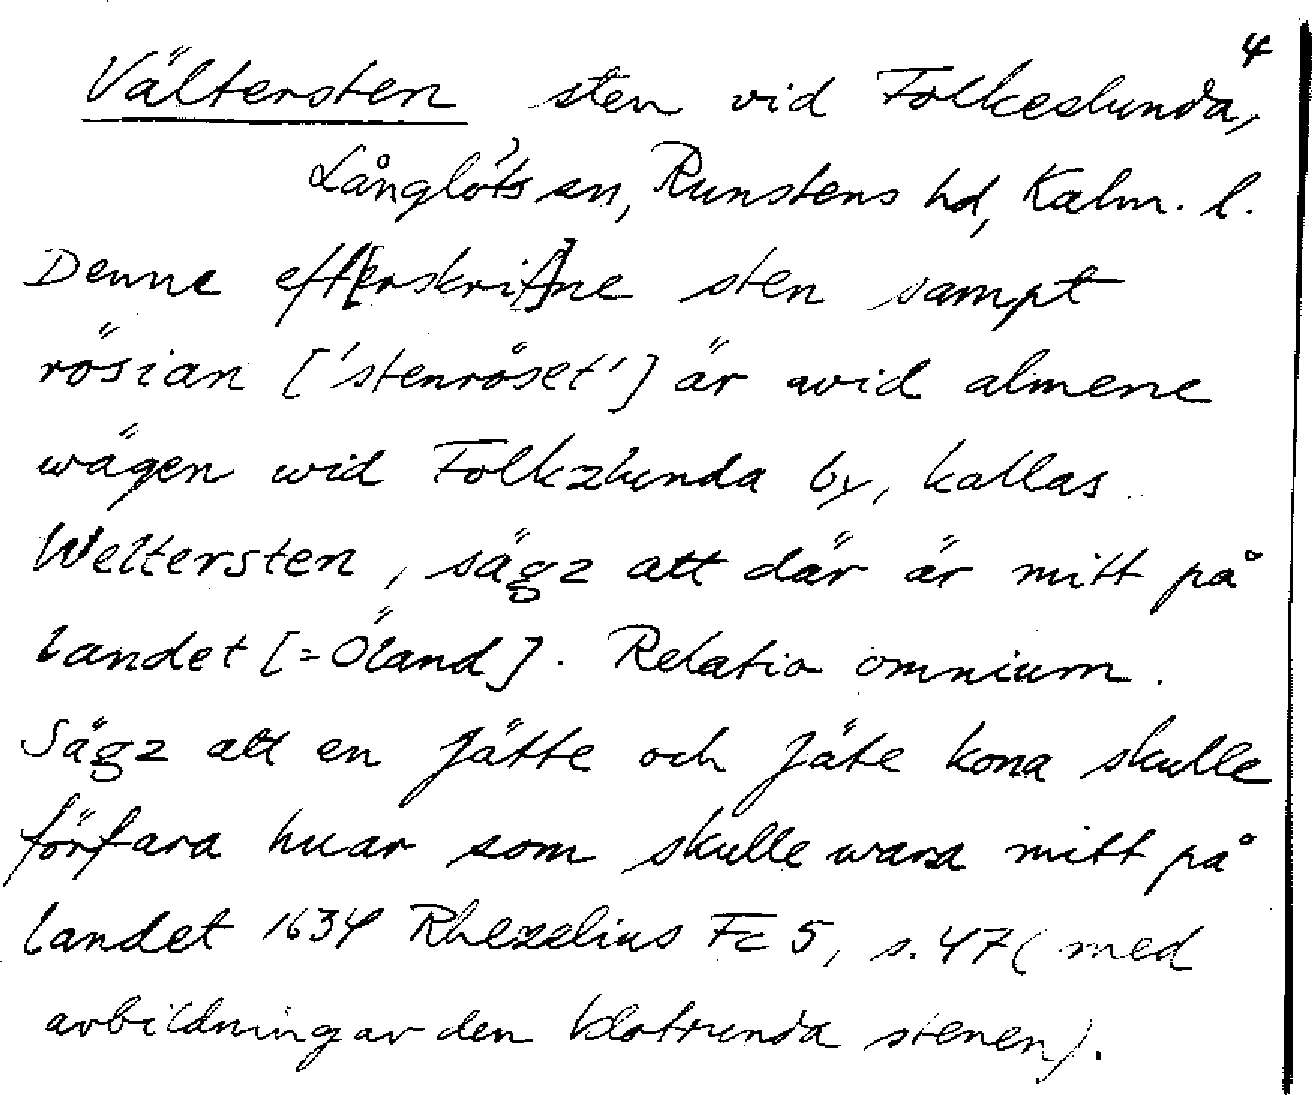 4
Vältersten sten vid Folkeslunda,
Långlöts sn, Runstens hd, Kalm. l.
Denne eft[erskrif]ne sten sampt
rösian ['stenröset'] är wid almene
wägen wid Folkzlunda by, kallas
Weltersten, sägz att där är mitt på
landet [=Öland]. Relatio omnium.
Sägz att en Jätte och Jäte kona skulle
förfara huar som skulle wara mitt på
landet 1634 Rhezelius Fc 5, s. 47 (med
avbildning av den klotrunda stenen).